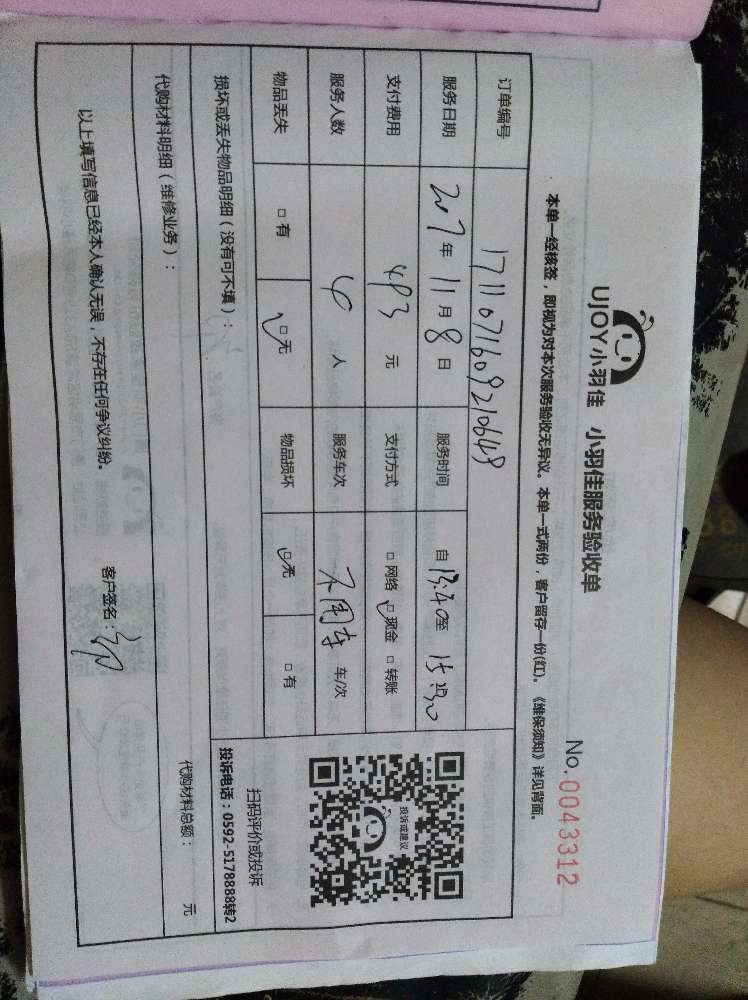 UJOY小羽佳 小羽佳服务验收单
No.0043312
本单一经核签，即视为对本次服务验收无异议。本单一式两份，客户留存一份(红)。《维保须知》详见背面。
订单编号 1711071609210648
服务日期 2017年11月8日 服务时间 自13:40至15:30
支付费用 493元 支付方式 □网络 □现金 □转账
服务人数 4人 服务车次 不用车 车/次
物品丢失 □有 □无 物品损坏 □无 □有
投诉或建议
扫码评价或投诉
投诉电话：0592-5178888转2
损坏或丢失物品明细（没有可不填）：
代购材料明细（维修业务）： 代购材料总额： 元
以上填写信息已经本人确认无误，不存在任何争议纠纷。 客户签名：